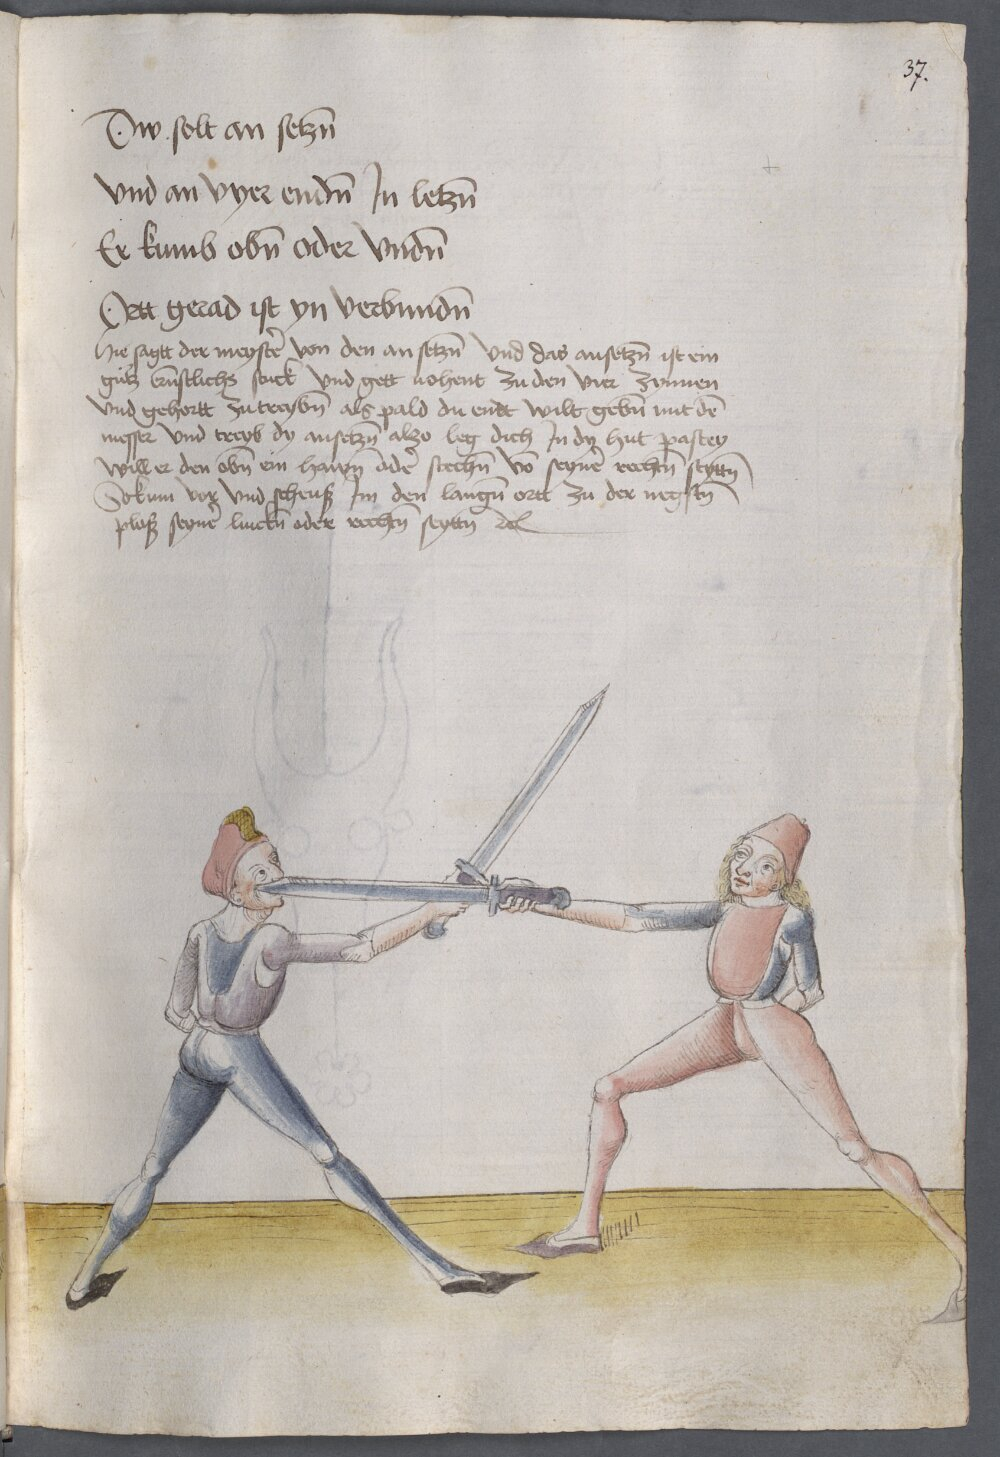 37.
Dw solt an setzñ
Vnd an vyer endñ In letzñ
Er kumb obñ oder vndñ
Ortt gerad ist yn verbundñ
Hie sagtt der meystẽ von den an setzñ vnd das ansetzñ ist ein
gutz ernstlichs stuck vnd gett nohent zu den vier zynnen
vnd gehortt zu treybñ als pald du endt wilt gebñ mit dẽ
messer vnd treyb dy ansetzñ alzo leg dich In dy hut pastey
will er den obñ ein hawñ odẽ stechñ võ seynẽ rechtñ seyttñ
So kum vor vnd scheuß Im den langñ ortt zu der negstñ
ploß seynẽ linckñ oder rechtñ seyttñ